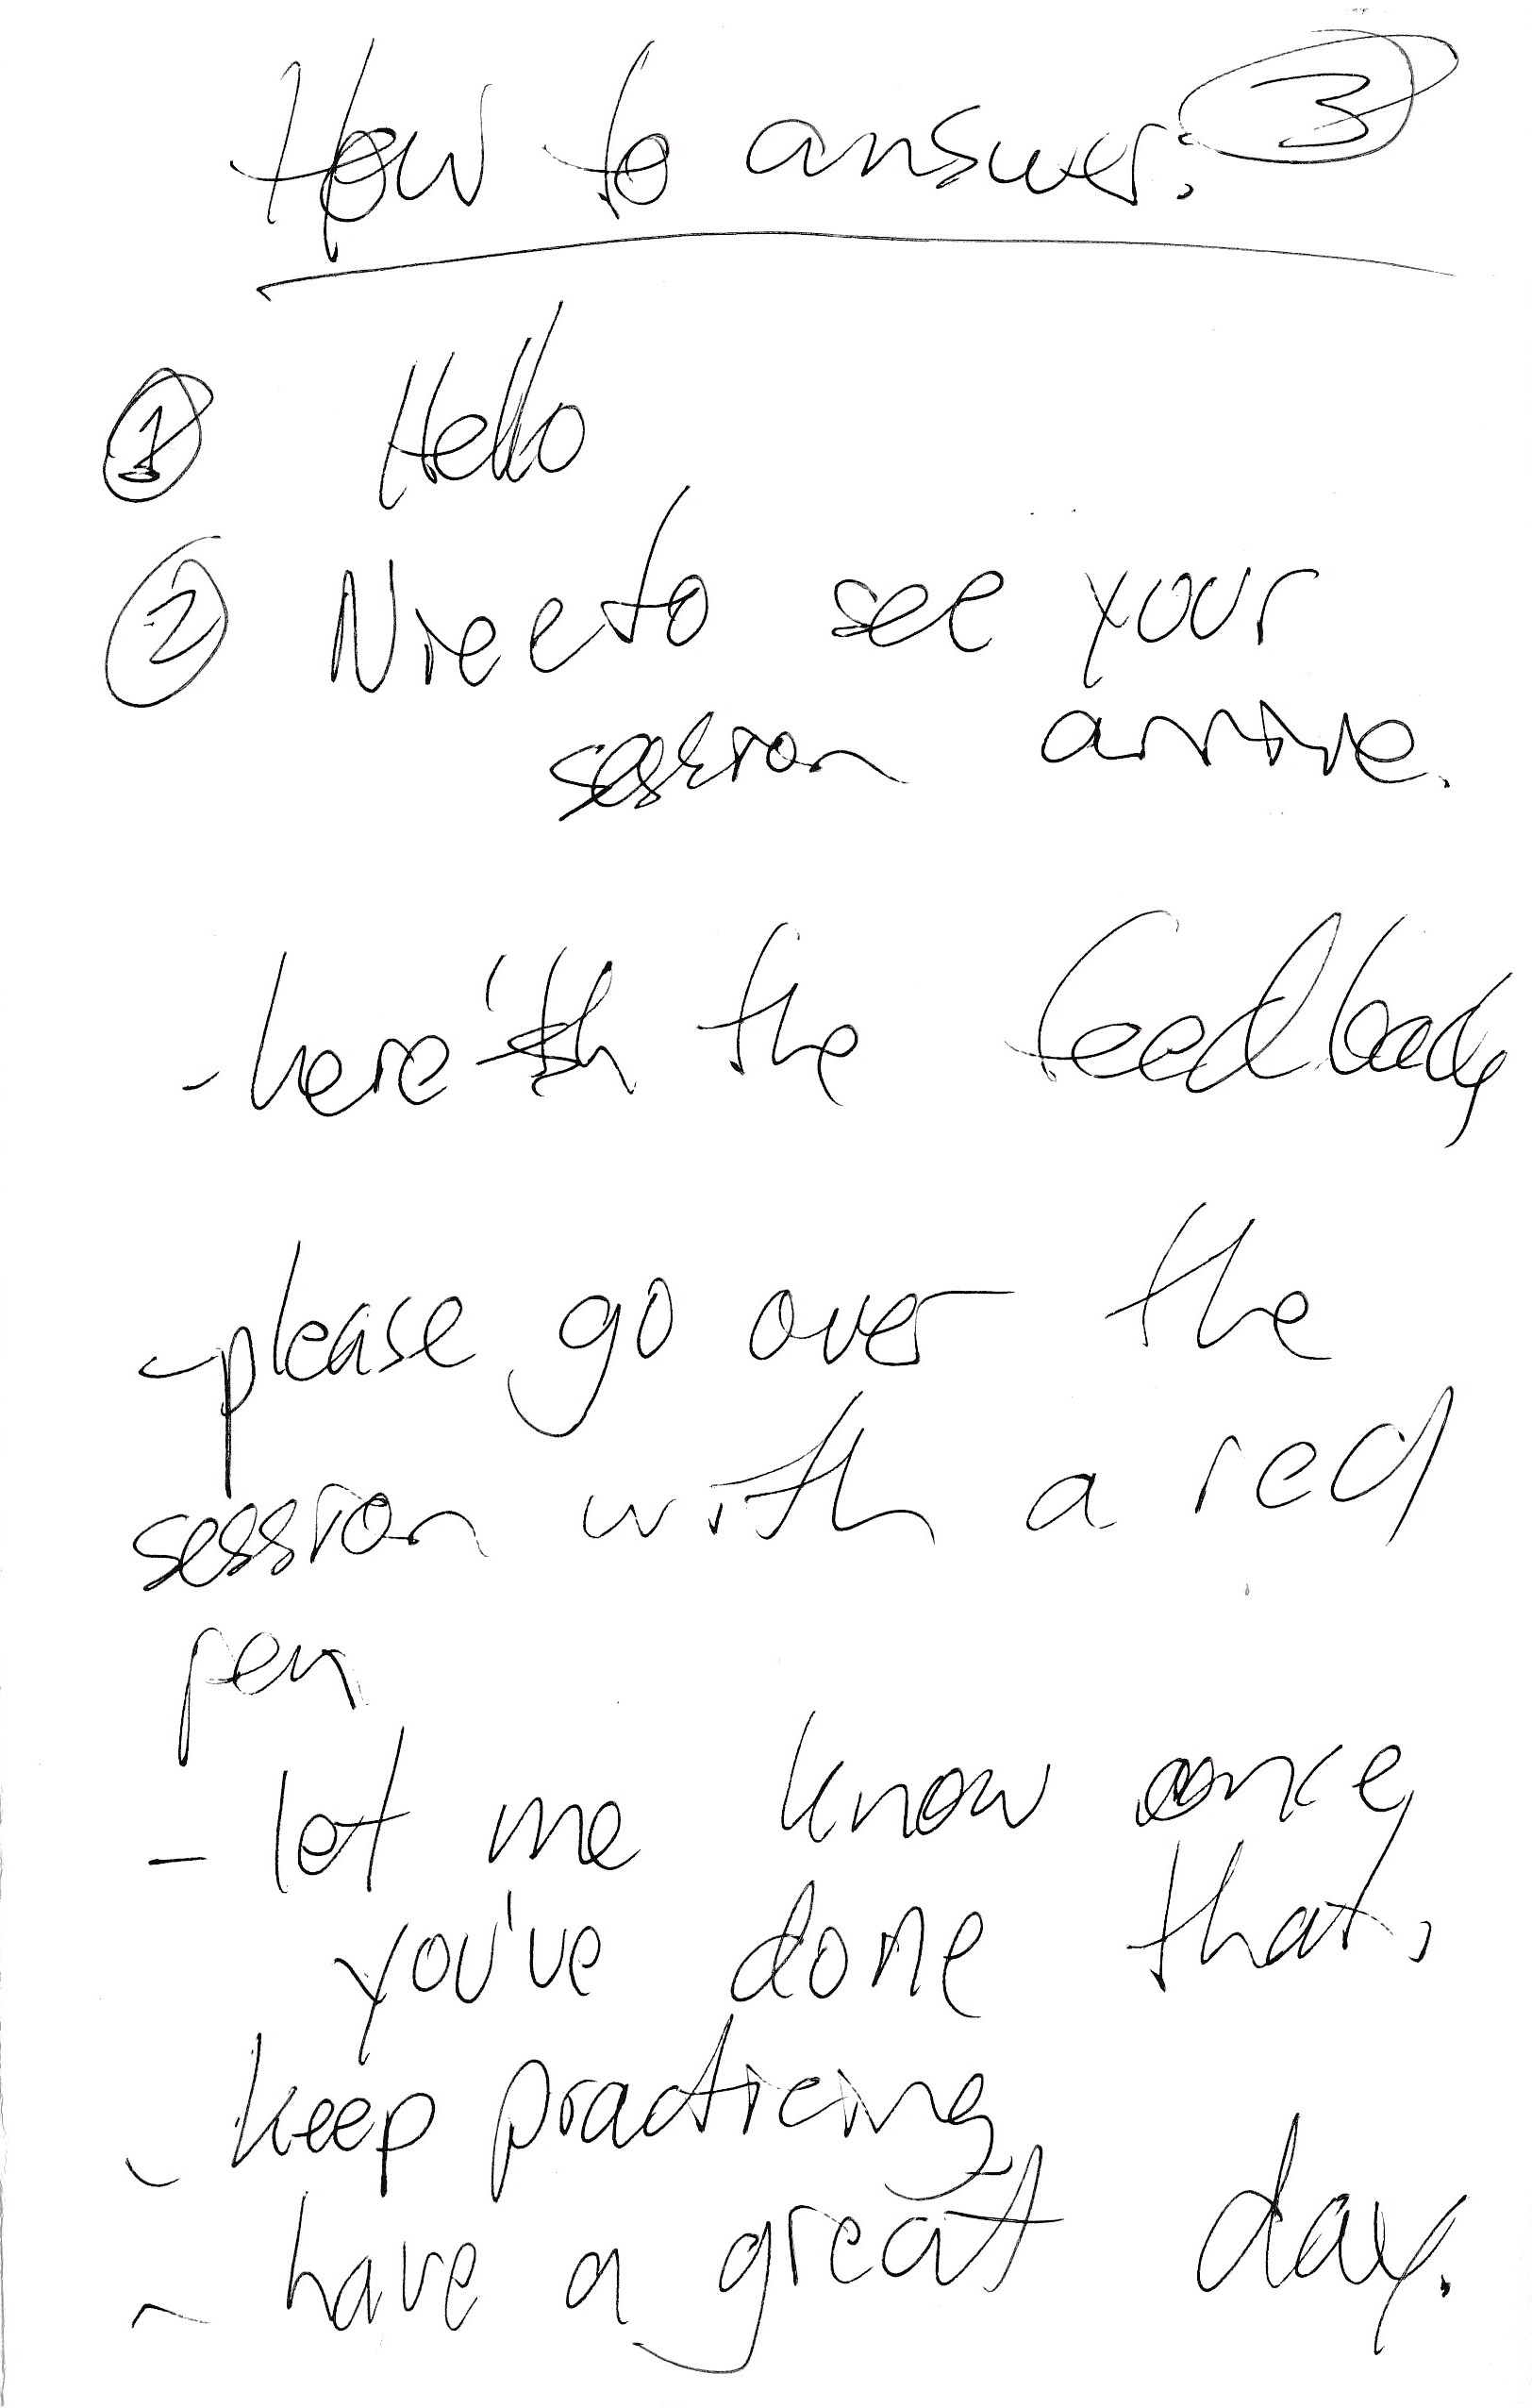 How to answer: 3
1 Hello
2 Nice to see your
session arrive.
- here's the feedback
- please go over the
session with a red
pen
- let me know once
you've done that.
- keep practicing
- have a great day.